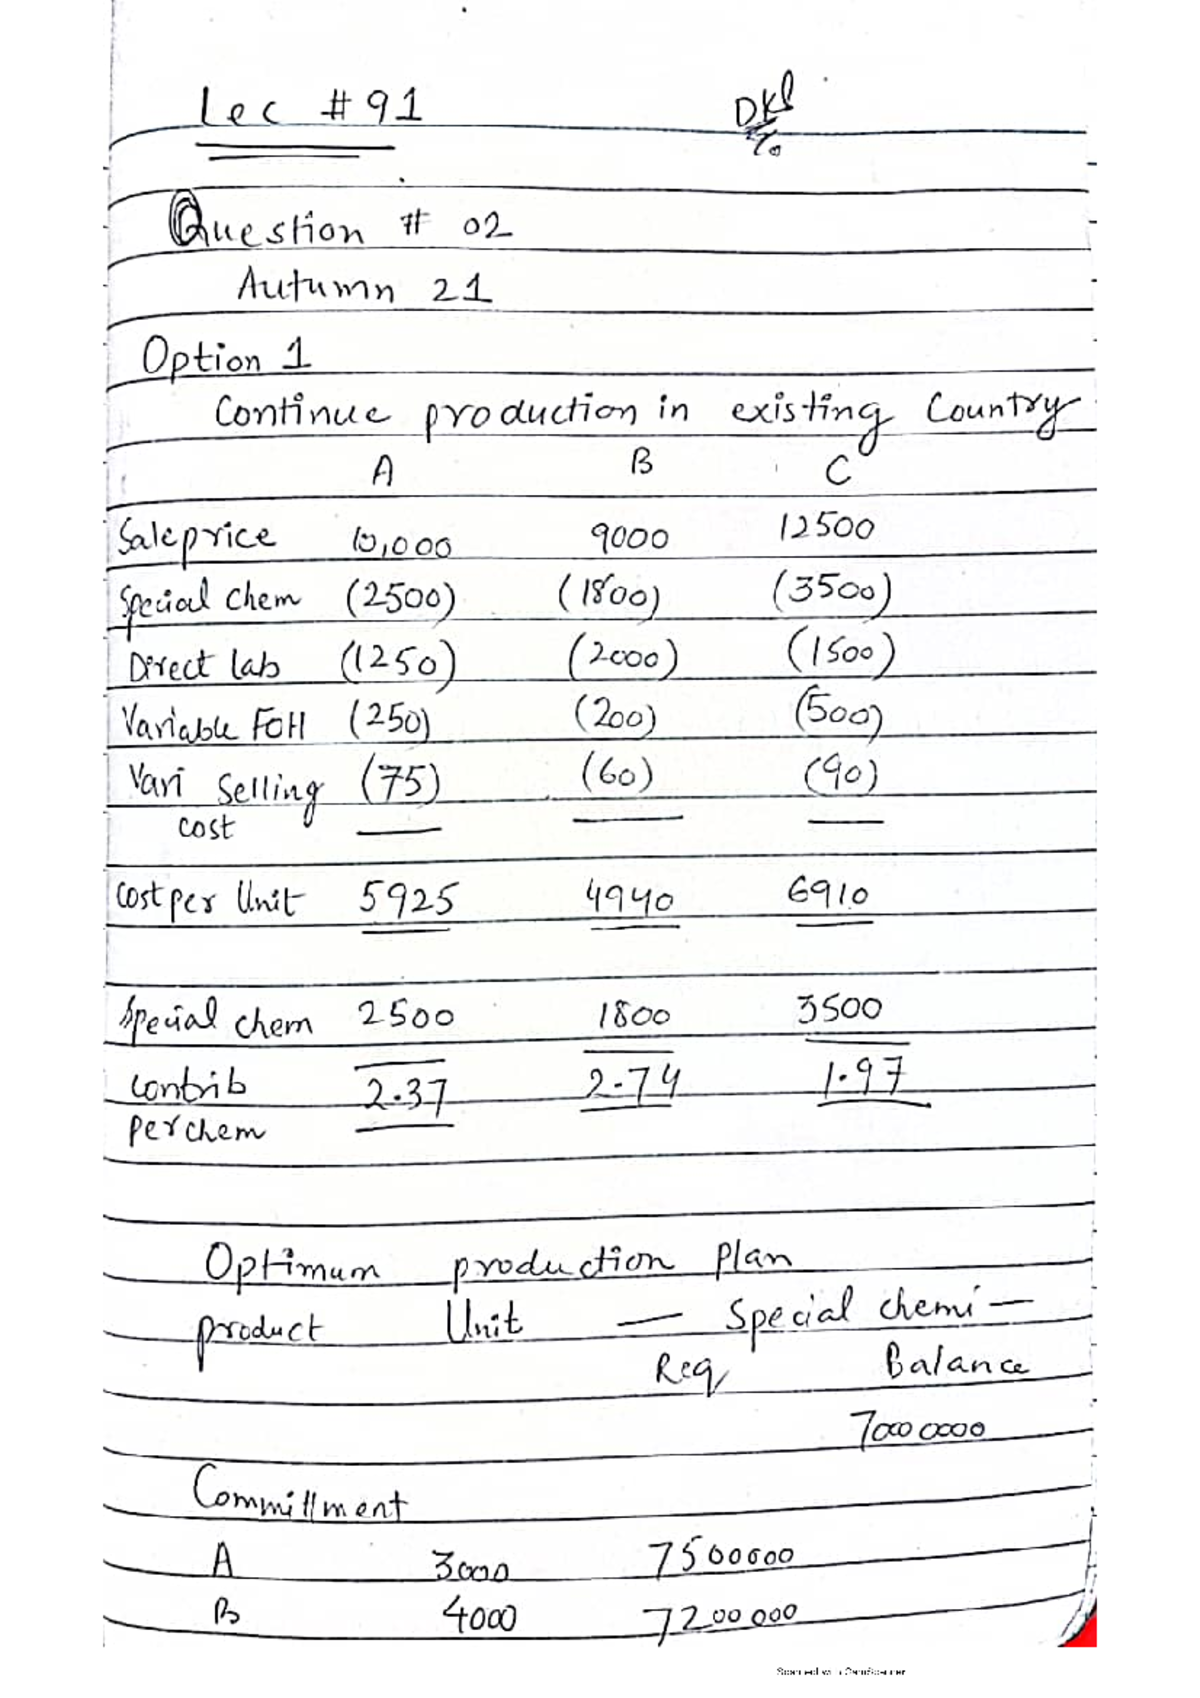 Lec # 91
Question # 02
Autumn 21
Option 1
Continue production in existing Country
A B C
Saleprice 10,000 9000 12500
Special Chem (2500) (1800) (3500)
Direct lab (1250) (2000) (1500)
Variable FOH (250) (200) (500)
Vari Selling (75) (60) (90)
cost
Cost per Unit 5925 4940 6910
Special chem 2500 1800 3500
Contrib 2.37 2.74 1.97
per chem
Optimum production Plan
product Unit — Special chemi —
Req Balance
70000000
Commillment
A 3000 7500000
B 4000 7200000
Scanned with CamScanner